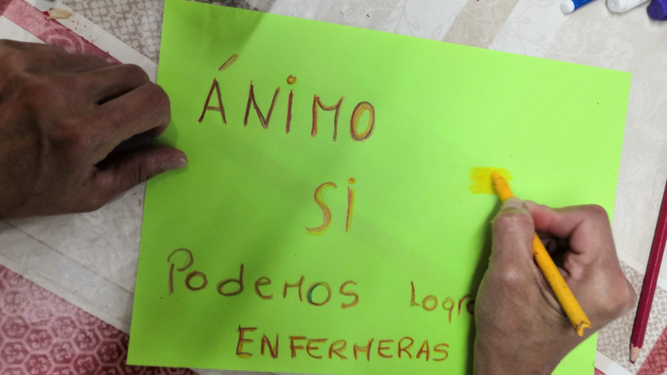 ÁNIMO
SI
PodeMOS
ENFERMERAS